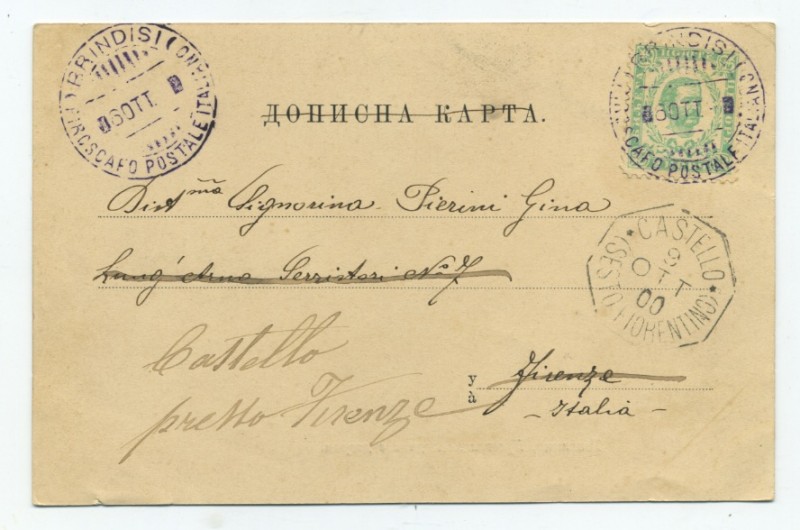 BRINDISI
6 OTT
PIROSCAFO POSTALE ITAL
BRINDISI
6 OTT
PIROSCAFO POSTALE ITAL
ДОПИСНА КАРТА.
Dist ma Signorina Pierini Gina
Lung'Arno Serristori No 7
CASTELLO
9
OTT
00
(SESTO FIORENTINO)
Castello
presso Firenze
у
à
Firenze
- Italia -